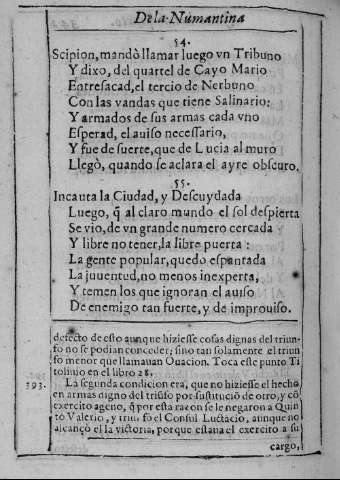 De la Numantina
54.
Scipion, mandò llamar luego vn Tribuno
Y dixo, del quartel de Cayo Mario
Entresacad, el tercio de Nerbuno
Con las vandas que tiene Salinario:
Y armados de sus armas cada vno
Esperad, el auiso necessario,
Y fue de suerte, que de Lucia al muro
Llegò, quando se aclara el ayre obscuro.
55.
Incauta la Ciudad, y Descuydada
Luego, q̃ al claro mundo el sol despierta
Se vio, de vn grande numero cercada
Y libre no tener, la libre puerta:
La gente popular, quedo espantada
La juuentud, no menos inexperta,
Y temen los que ignoran el auiso
De enemigo tan fuerte, y de improuiso.
defecto de esto aunque hiziesse cosas dignas del triun-
fo no se podian conceder; sino tan solamente el triun
fo menor que llamauan Ouacion. Toca este punto Ti
tolibio en el libro 28.
393. La segunda condicion era, que no hiziesse el hecho
en armas digno del triũfo por sustituciõ de otro, y cõ
exercito ageno, q̃ por esta razon se le negaron a Quin
to Valerio, y triufo el Consul Luctacio, aunque no
alcançò el la victoria, porque estaua el exercito a su
cargo,